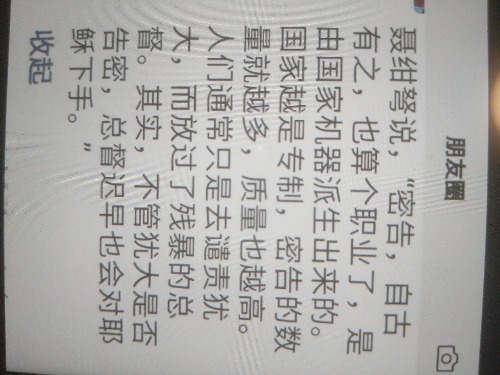 朋友圈
聂绀弩说，“密告，自古
有之，也算个职业了，是
由国家机器派生出来的。
国家越是专制，密告的数
量就越多，质量也越高。
人们通常只是去谴责犹
大，而放过了残暴的总
督。其实，不管犹大是否
告密，总督迟早也会对耶
稣下手。”
收起